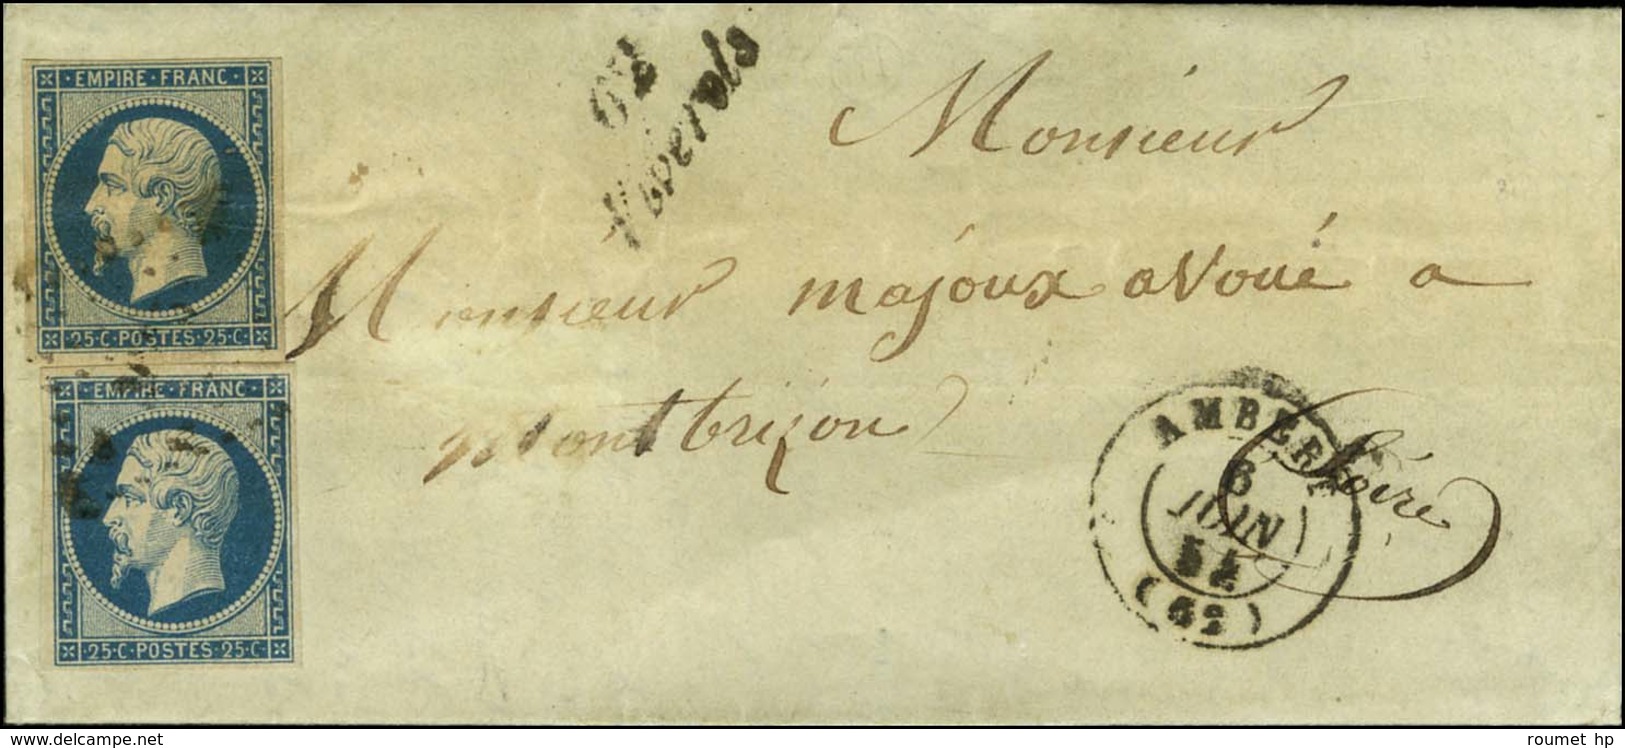 EMPIRE · FRANC
25·C·POSTES·25·C·
EMPIRE · FRANC
25·C·POSTES·25·C·
62
Monsieur
Monsieur majoux avoué a
montbrizon
Loire
AMBERT
6
JUIN
54
(62)
delcampe.net
roumet hp